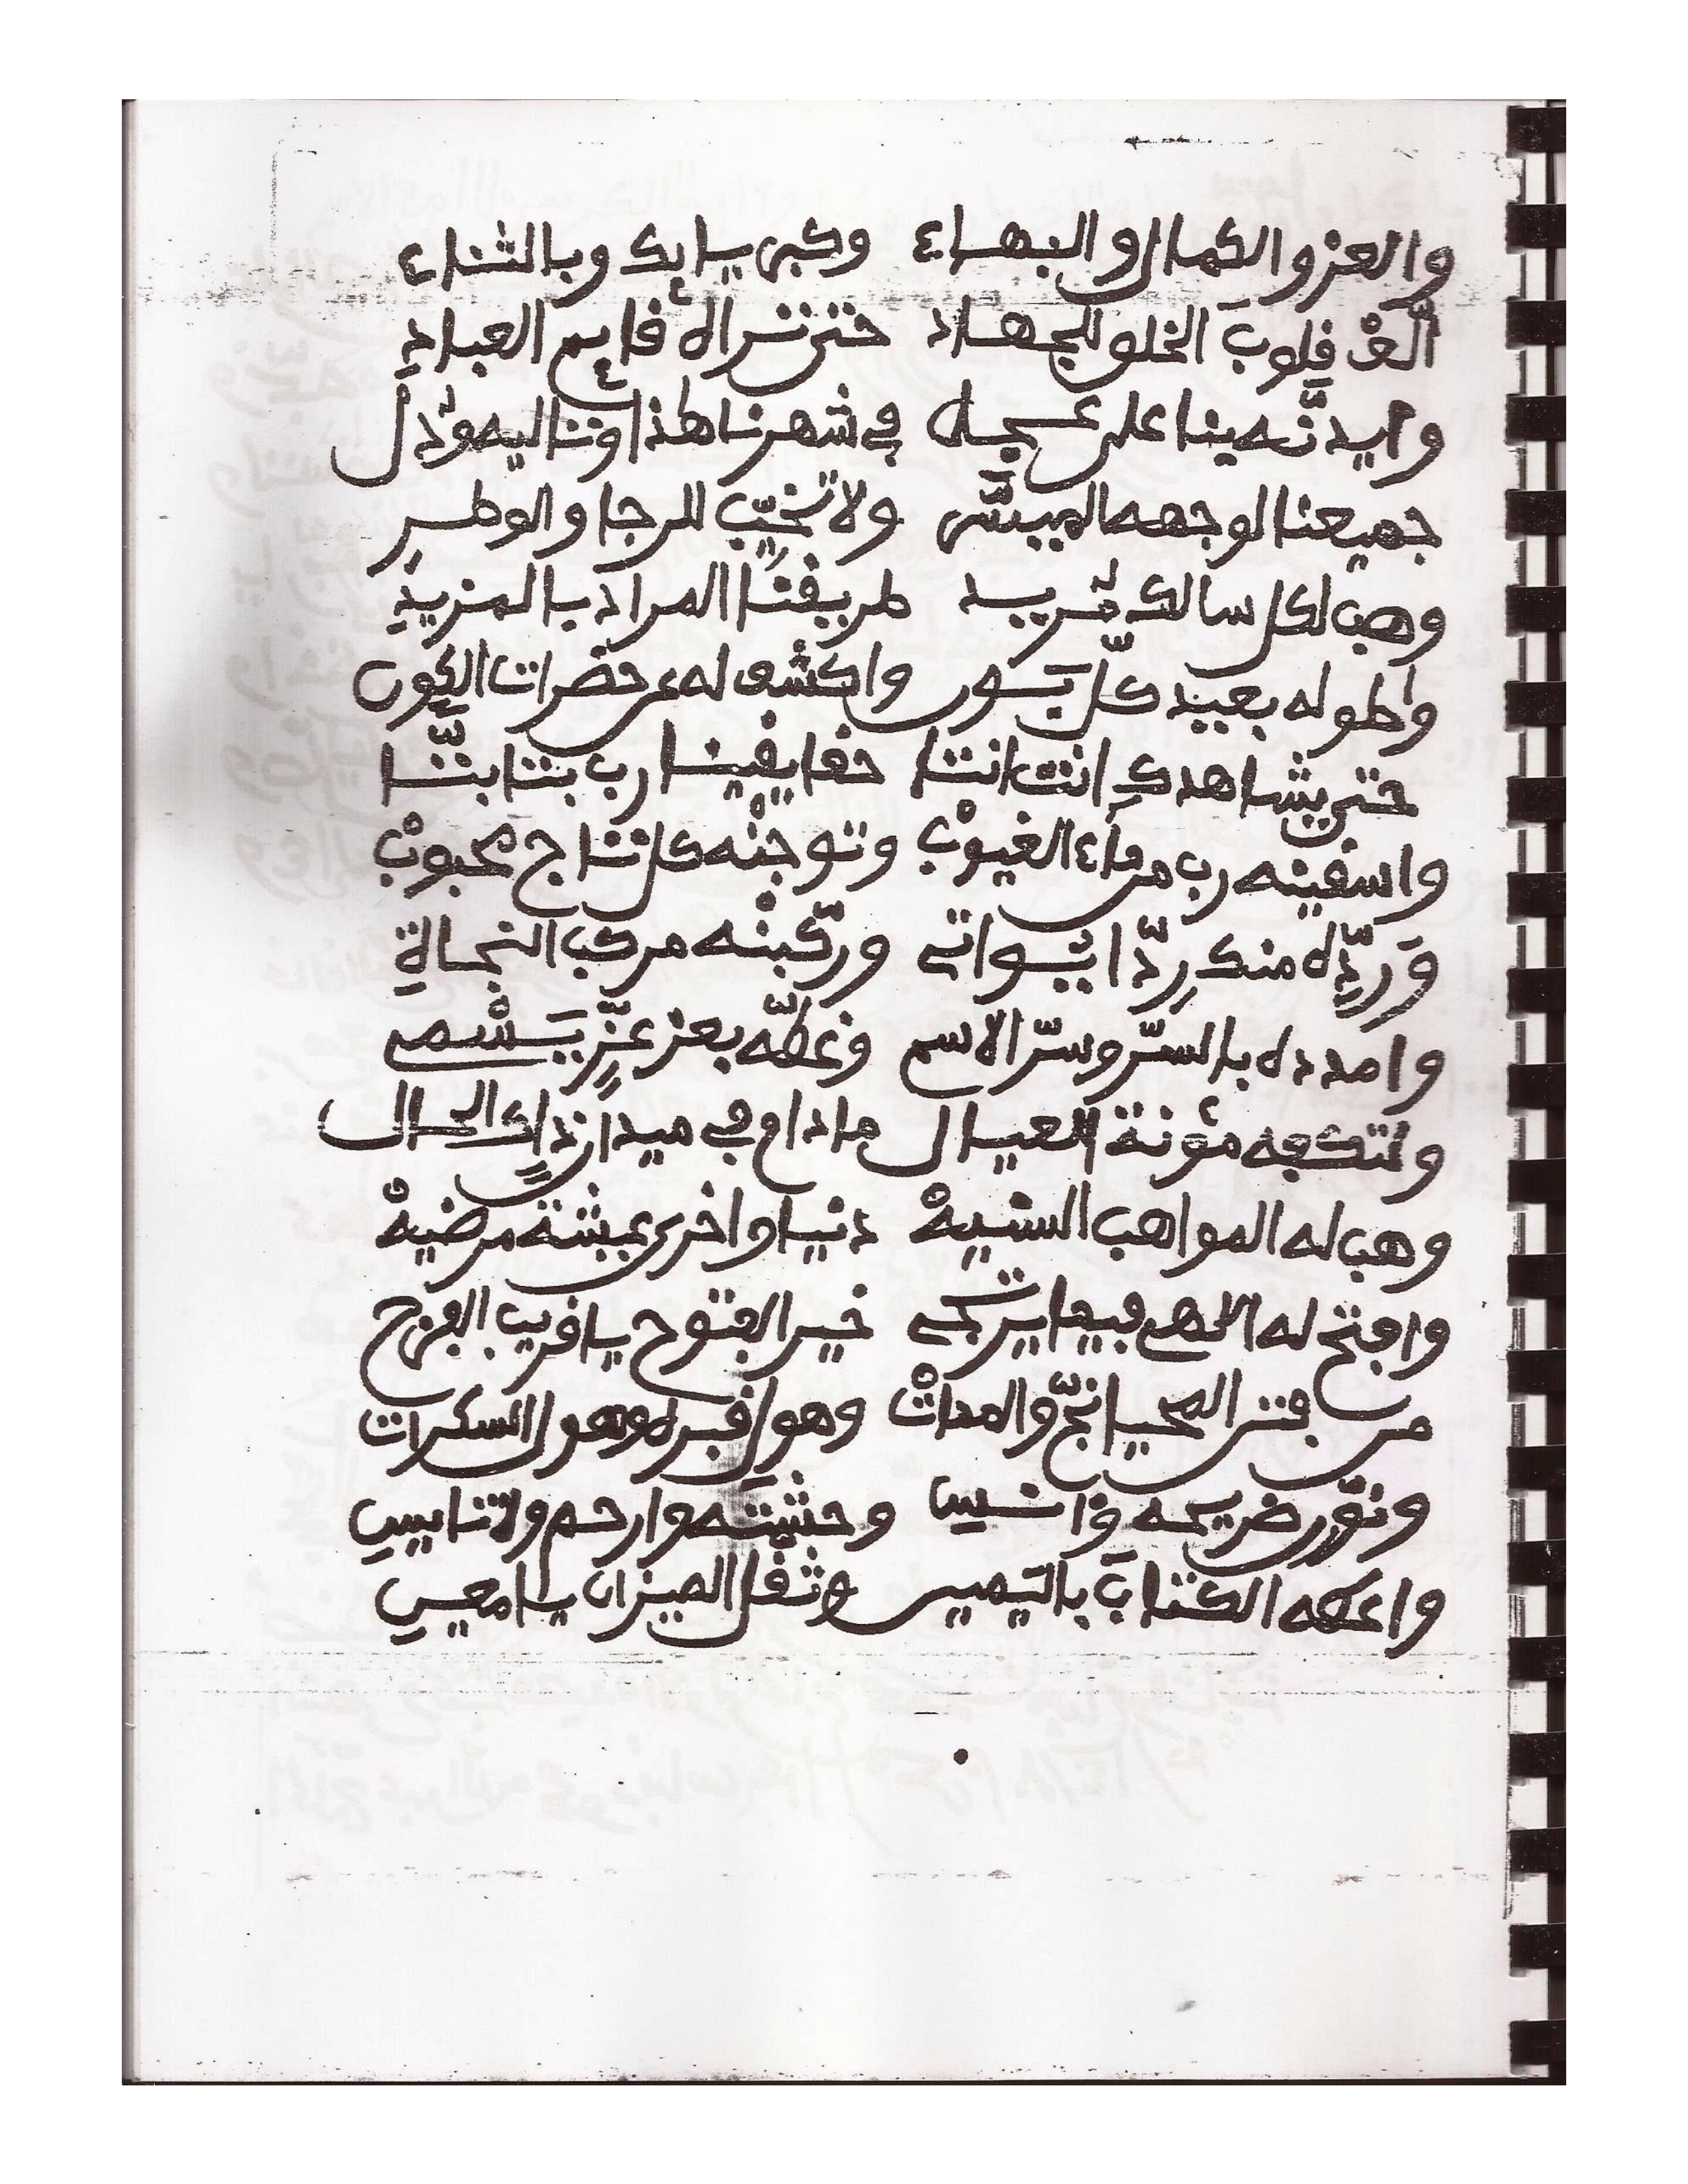 والعز والكمال والبهاء وكبريايك وبالثناء
ألّفْ قلوبَ الخلق للجهاد حتى تراه قايم العبادِ
وايدنّه ينا على عجل في شهرنا هذا وتنا اليه
جميعنا لوجهه المبشّر ولا تخيّب للرجا والوطر
وهب لكل سالك مُريد طريقنا المراد بالمزيدِ
واطو له بعيد كلّ بَون واكشف له عن حضرات الكون
حتى يشاهدك انت انتا حقا يقينا رب بتا بتّا
واسقينه رب من ماء الغيوبْ وتوجنْه كل تاج محبوبْ
وَردّه منك رِدّا يواتي وركّبنْه مركب النجاةِ
وامدده بالسرّ وسرّ الاسم وغطّه بعز عِزٍّ يَسْمى
ولتكفه مؤنة العيال ما دام في ميدان ذاك الحال
وهب له المواهب السنيهْ دنيا واخرى عيشة مرضيهْ
وافتح له اللهى فيما يرتجى خير الفتوح يا قريب الفرج
من فتن المحيا نجّ والمماتْ وهول قبر وهول السكرات
ونوّر ضريحه وَانسِ وحشته وارحم ولا تنا
واعطه الكتابَ باليمين وثقّل الميزان يا معينِ